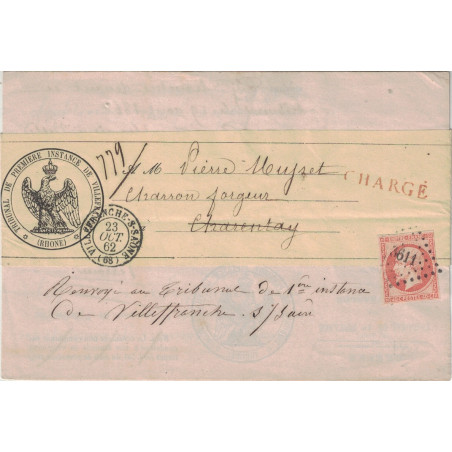 TRIBUNAL DE PREMIÈRE INSTANCE DE VILLEFR
(RHONE)
779
M M Pierre Muzset
Charron forgeur
Charentay
CHARGÉ
VILLEFRANCHE-S-SAONE
23
OCT.
62
(68)
611
Renvoyé au Tribunal de 1ère instance
de Villefranche s/ Saôn